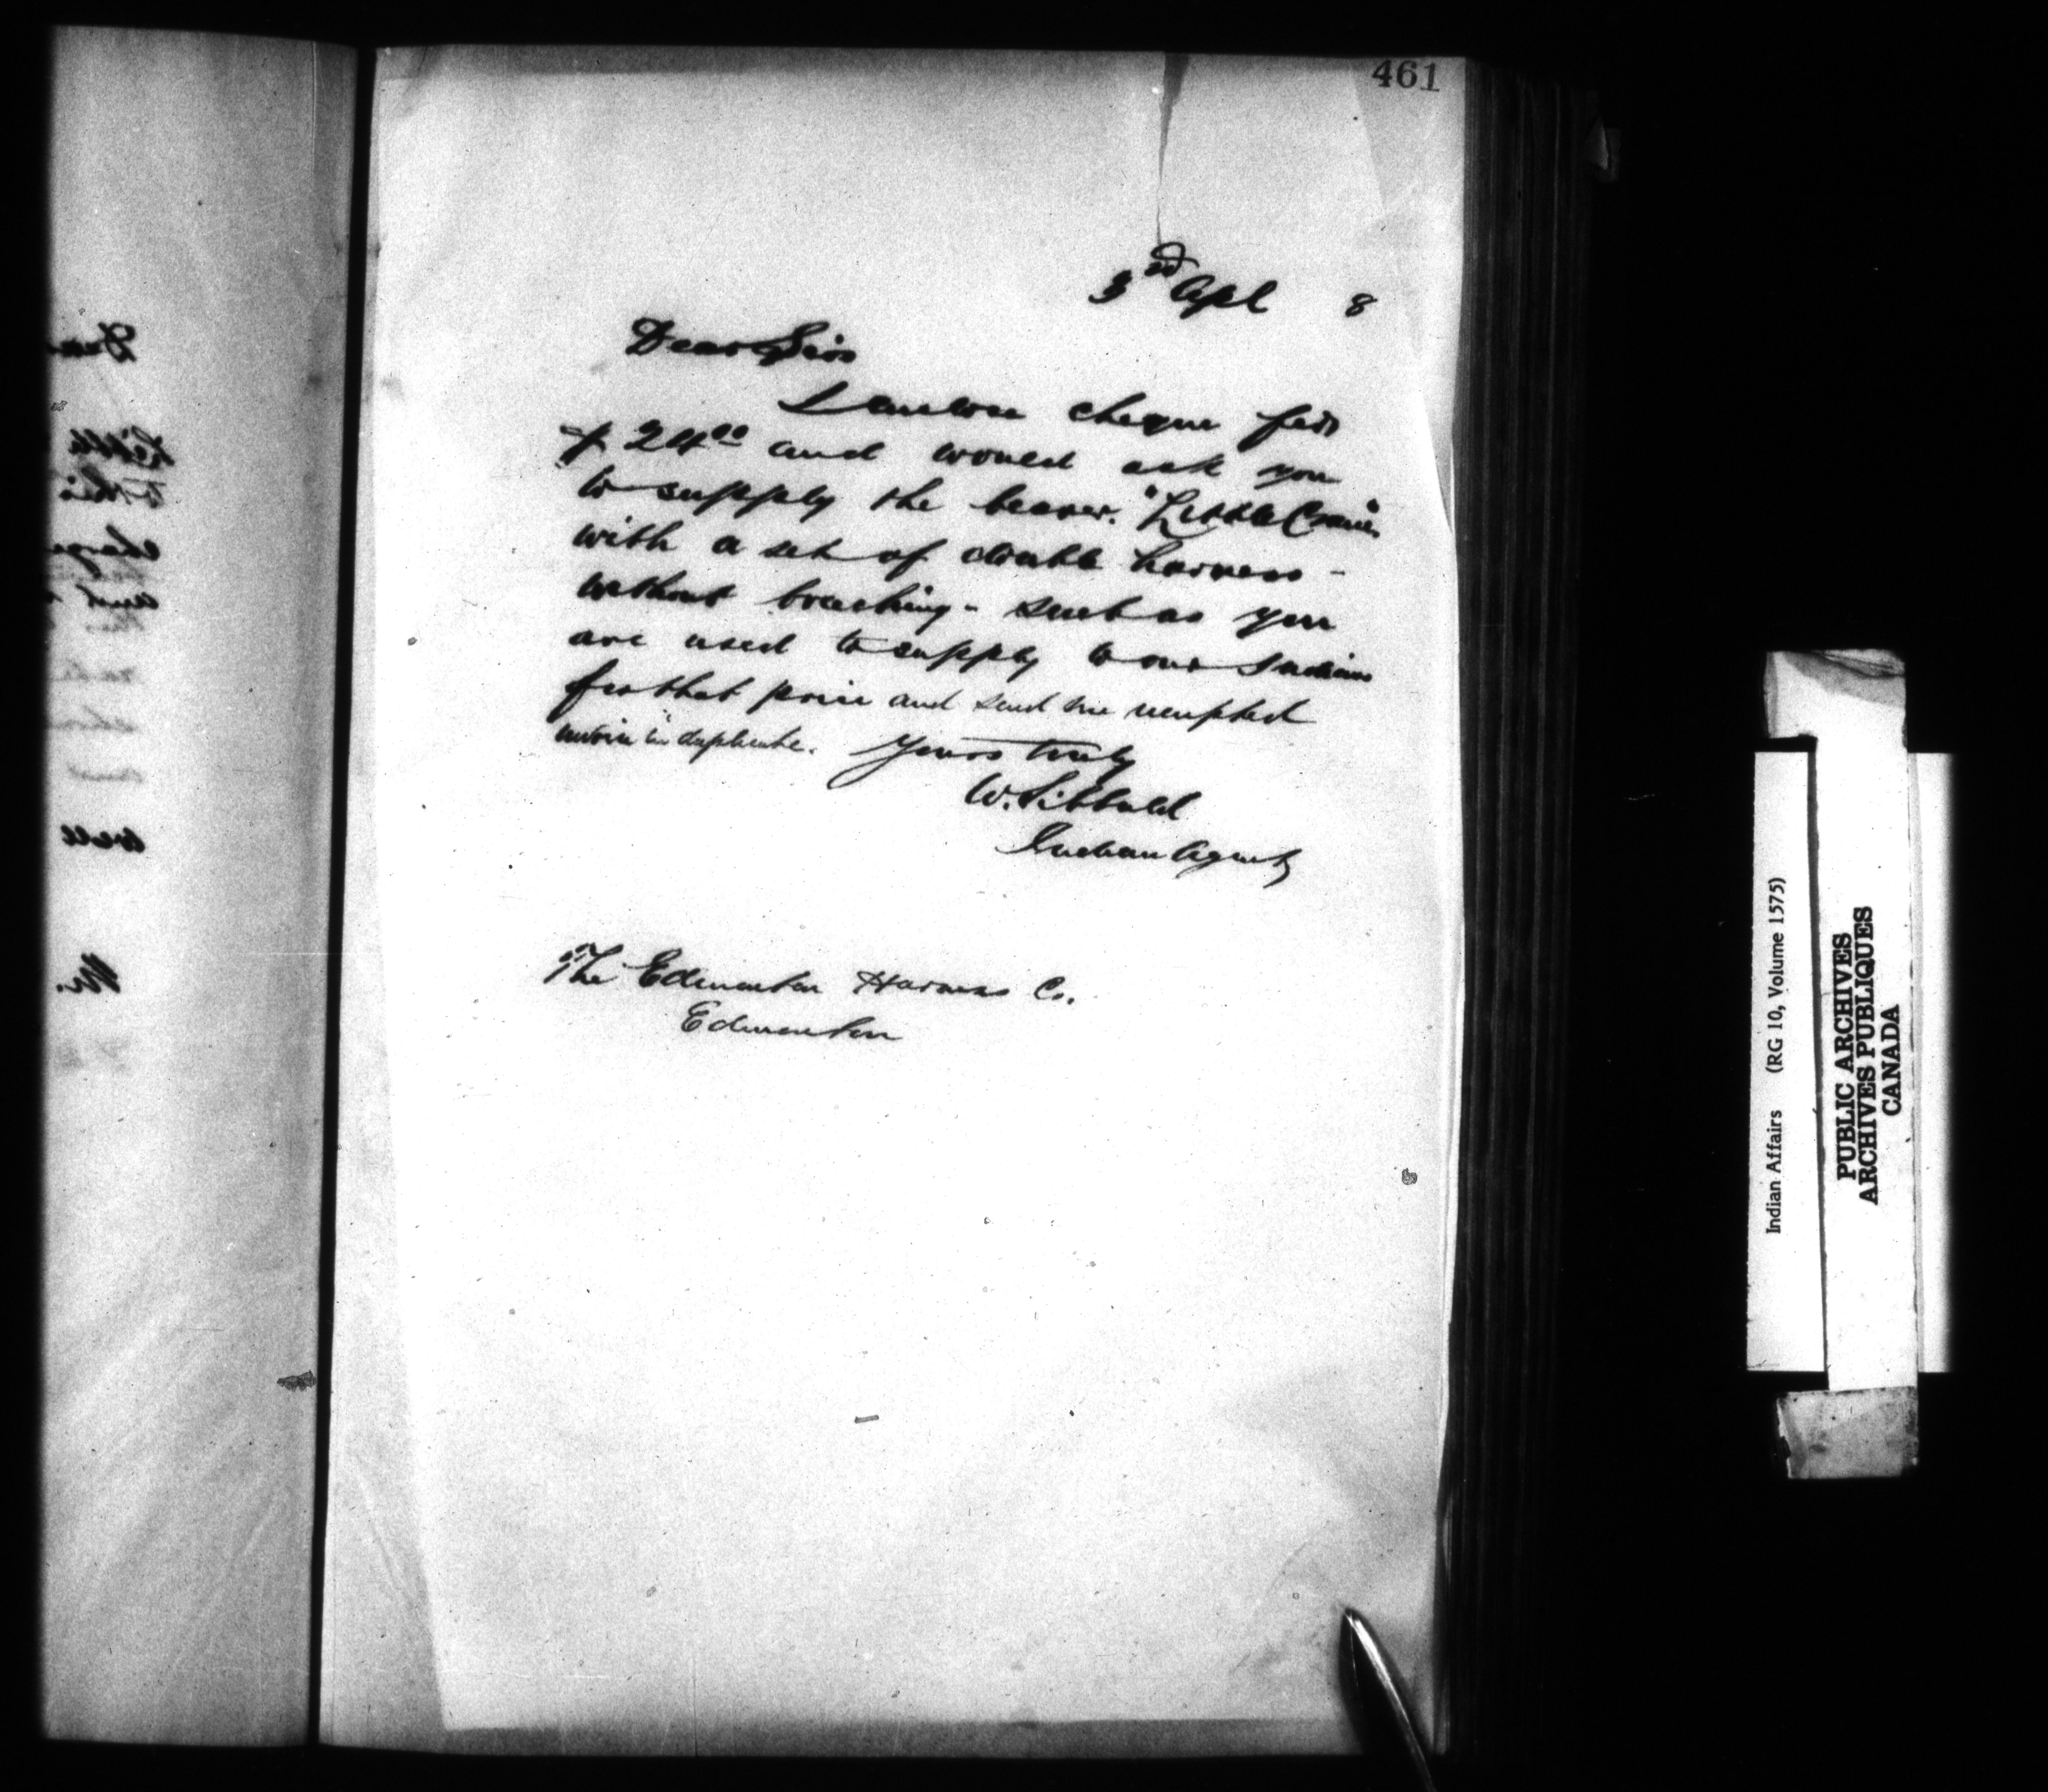 461
3rd Apl 8
Dear Sirs
I enclose cheque for
$24.00 and would ask you
to supply the bearer "Little Crane"
with a set of double harness -
without breeching - such as you
are used to supply to our Indians
for that price and send me receipted
invoice in duplicate. Yours truly
W. Sibbald
Indian Agent
The Edmonton Harness Co.
Edmonton
Indian Affairs (RG 10, Volume 1575)
PUBLIC ARCHIVES
ARCHIVES PUBLIQUES
CANADA